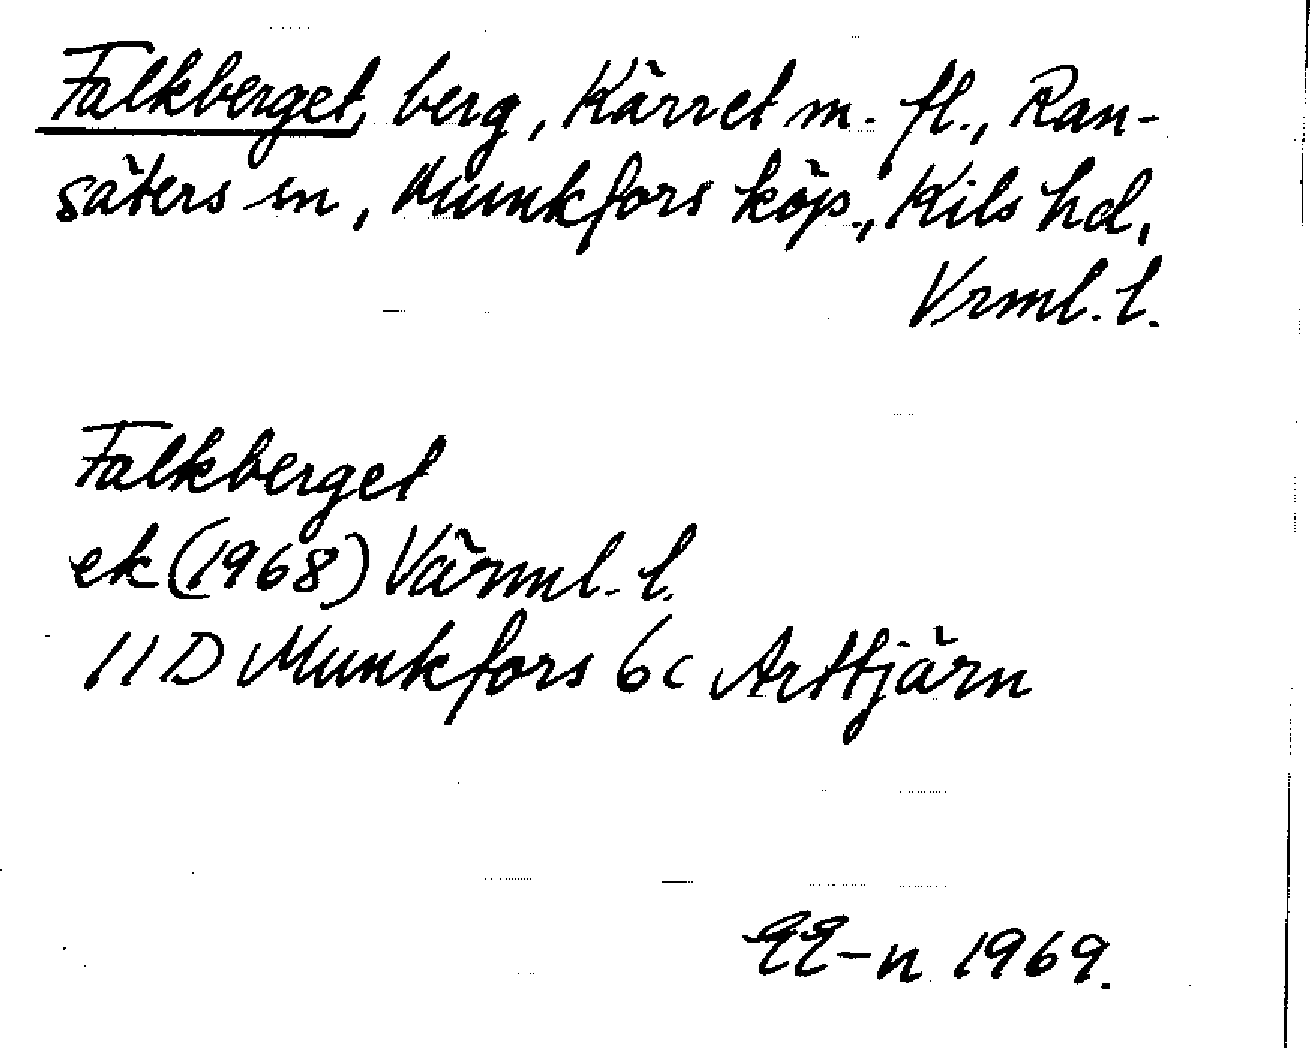 Falkberget, berg, Kärret m. fl., Ran-
säters sn, Munkfors köp., Kils hd,
Vrml. l.
Falkberget
ek (1968) Värml. l.
11 D Munkfors 6c Arttjärn
EE-n 1969.